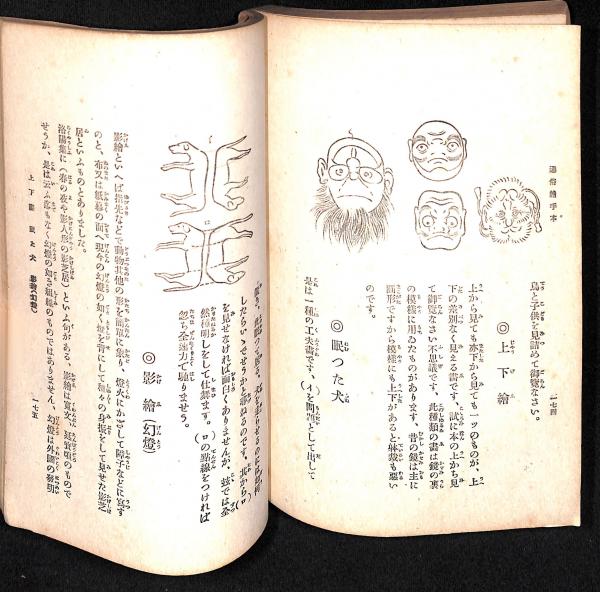 通俗繪手本
一七四
鳥と子供を見詰めて御覽なさい。
◎上下繪
上から見ても亦下から見ても一ツのものが、上
下の差別なく見える畵です、試に本の上から見
て御覽なさい不思議です、此種類の畵は鏡の裏
の模樣に用ゐたものがあります、昔の鏡は主に
圓形ですから模樣にも上下があると体裁も惡い
のです。
◎眠つた犬
是は一種の工夫畵です、(イ)を問題として出して
したらいゝでせうかと尋ねるのです、其から(ロ)
を見せなければ面白くありませんが、茲では全
然種明しをして仕舞ます。(ロ)の點線をつければ
忽ち全速力で馳ませう。
◎影繪(幻燈)
影繪といへば指先などで動物其他の形を簡單に象り、燈火にかざして障子などに寫す
のと、布又は紙樣の面へ現今の幻燈の如く
居といふものとありました。
洛陽集に(春の夜や影人形の影芝居)といふ句がある、影繪は寛文、延寶頃のもので
せうか、是は云ふ迄もなく幻燈の如き組織のものではありません、幻燈は外國の發明
上下繪 眠た犬 影繪(幻燈)
一七五